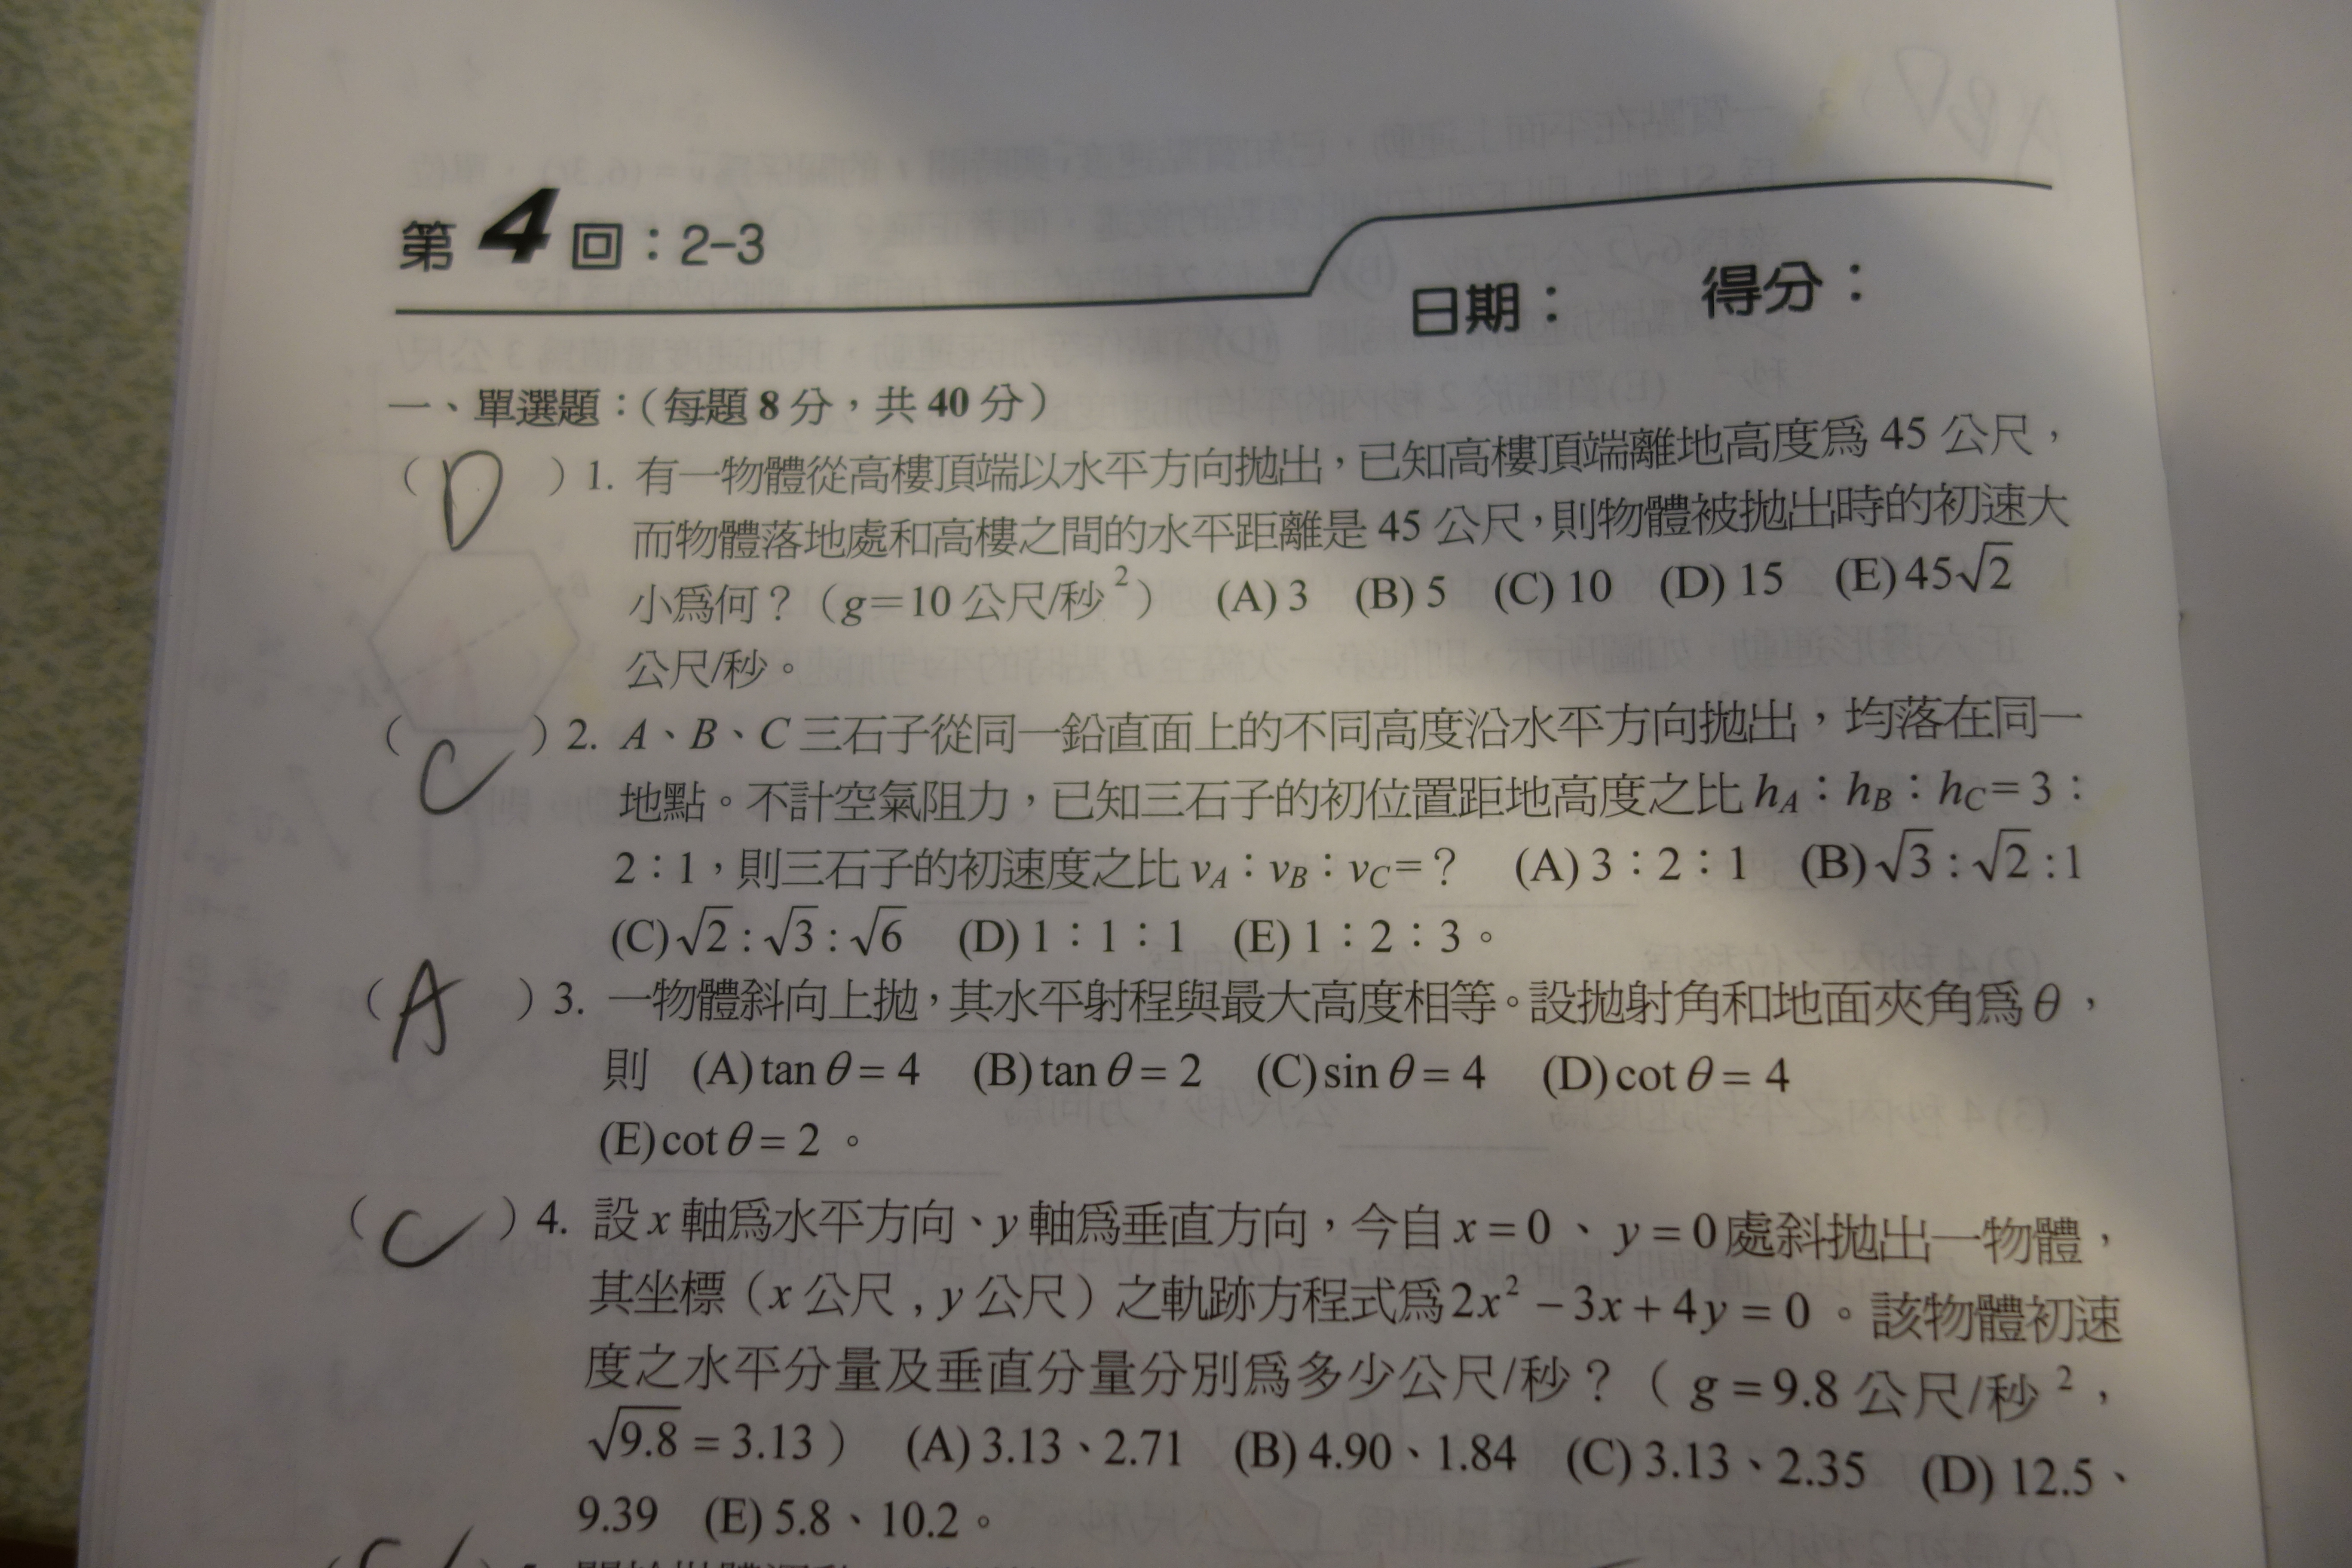 第4回：2-3
日期：　得分：
一、單選題：（每題8分，共40分）
（ D ）1. 有一物體從高樓頂端以水平方向拋出，已知高樓頂端離地高度爲 45 公尺，
而物體落地處和高樓之間的水平距離是 45 公尺，則物體被拋出時的初速大
小爲何？（g=10 公尺/秒²）　(A) 3　(B) 5　(C) 10　(D) 15　(E) 45√2
公尺/秒。
（ C ）2. A、B、C 三石子從同一鉛直面上的不同高度沿水平方向拋出，均落在同一
地點。不計空氣阻力，已知三石子的初位置距地高度之比 hA：hB：hC=3：
2：1，則三石子的初速度之比 vA：vB：vC=？　(A) 3：2：1　(B) √3 : √2 : 1
(C) √2 : √3 : √6　(D) 1：1：1　(E) 1：2：3。
（ A ）3. 一物體斜向上拋，其水平射程與最大高度相等。設拋射角和地面夾角爲θ，
則　(A) tan θ = 4　(B) tan θ = 2　(C) sin θ = 4　(D) cot θ = 4
(E) cot θ = 2 。
（ C ）4. 設 x 軸爲水平方向、y 軸爲垂直方向，今自 x = 0 、 y = 0 處斜拋出一物體，
其坐標（x 公尺 , y 公尺）之軌跡方程式爲 2x² − 3x + 4y = 0 。該物體初速
度之水平分量及垂直分量分別爲多少公尺/秒？（ g = 9.8 公尺/秒²，
√9.8 = 3.13 ）　(A) 3.13、2.71　(B) 4.90、1.84　(C) 3.13、2.35　(D) 12.5、
9.39　(E) 5.8、10.2。